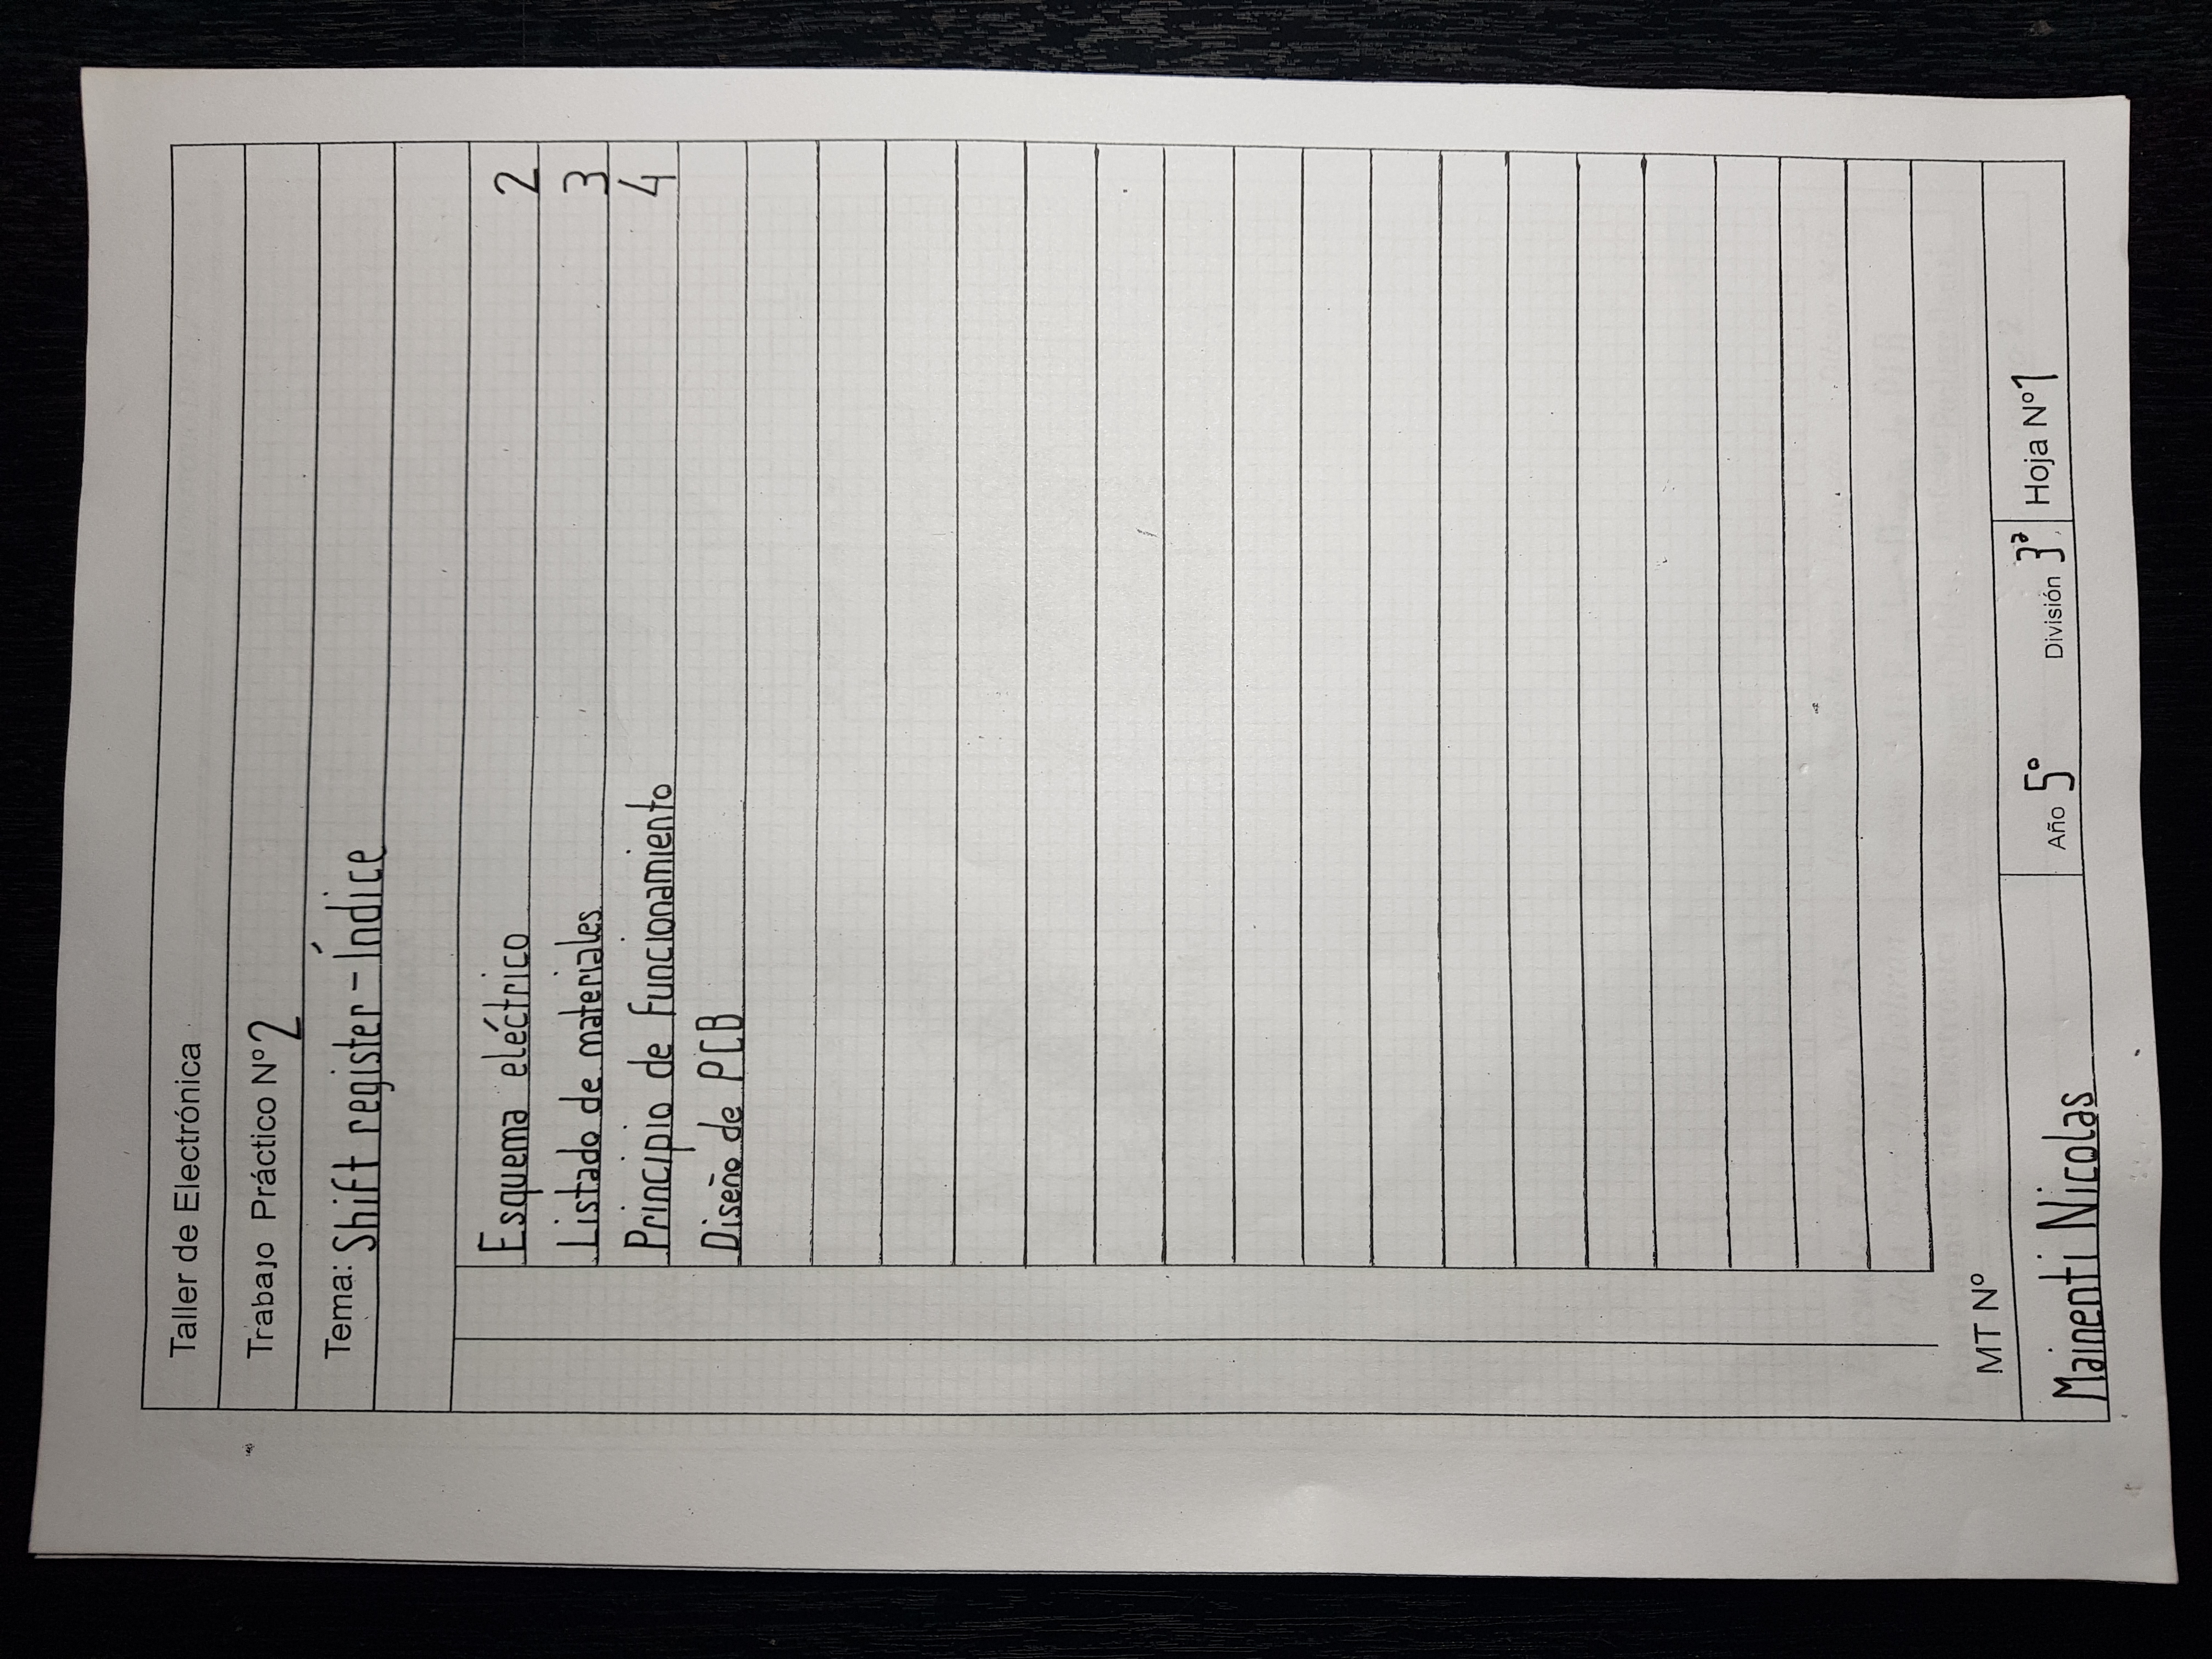 Taller de Electrónica
Trabajo Práctico Nº 2
Tema: Shift register - Índice
Esquema eléctrico 2
Listado de materiales 3
Principio de funcionamiento 4
Diseño de PCB
MT Nº
Mainenti Nicolas Año 5º División 3ª Hoja Nº 1